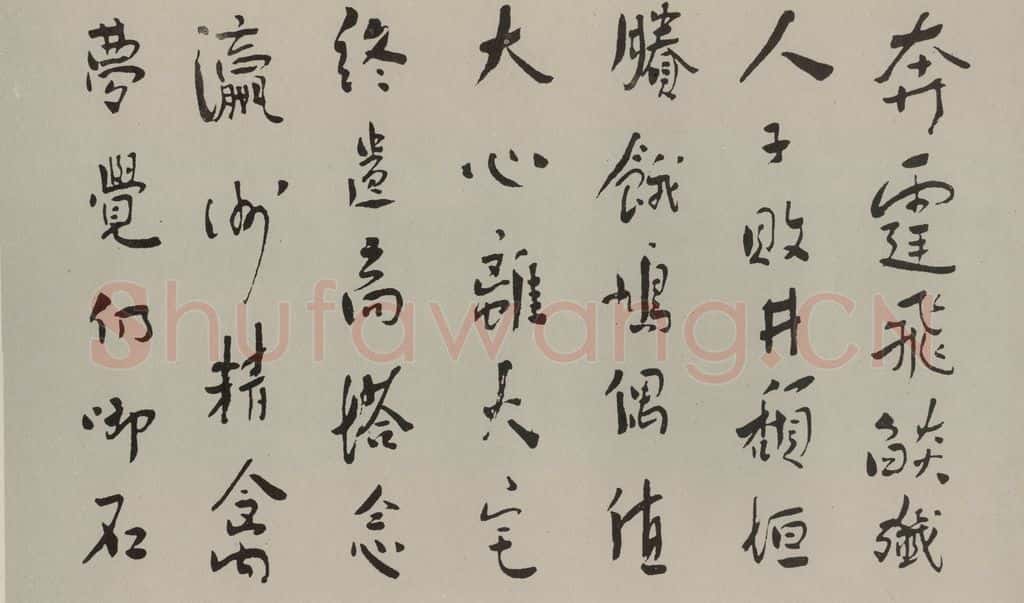 奔霆飛燄殲
人子敗井頹垣
賸餓鳩偶值
大心離火宅
終遺高塔念
瀛洲精禽
夢覺仍啣石
Shufawang.CN